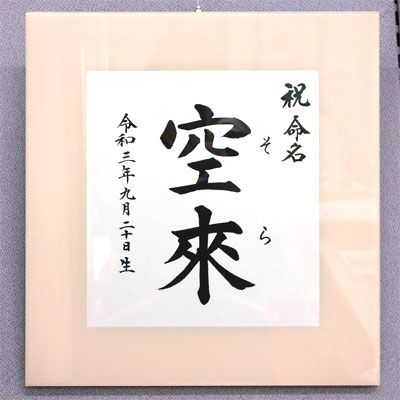 祝命名
そら
空來
令和三年九月二十日生